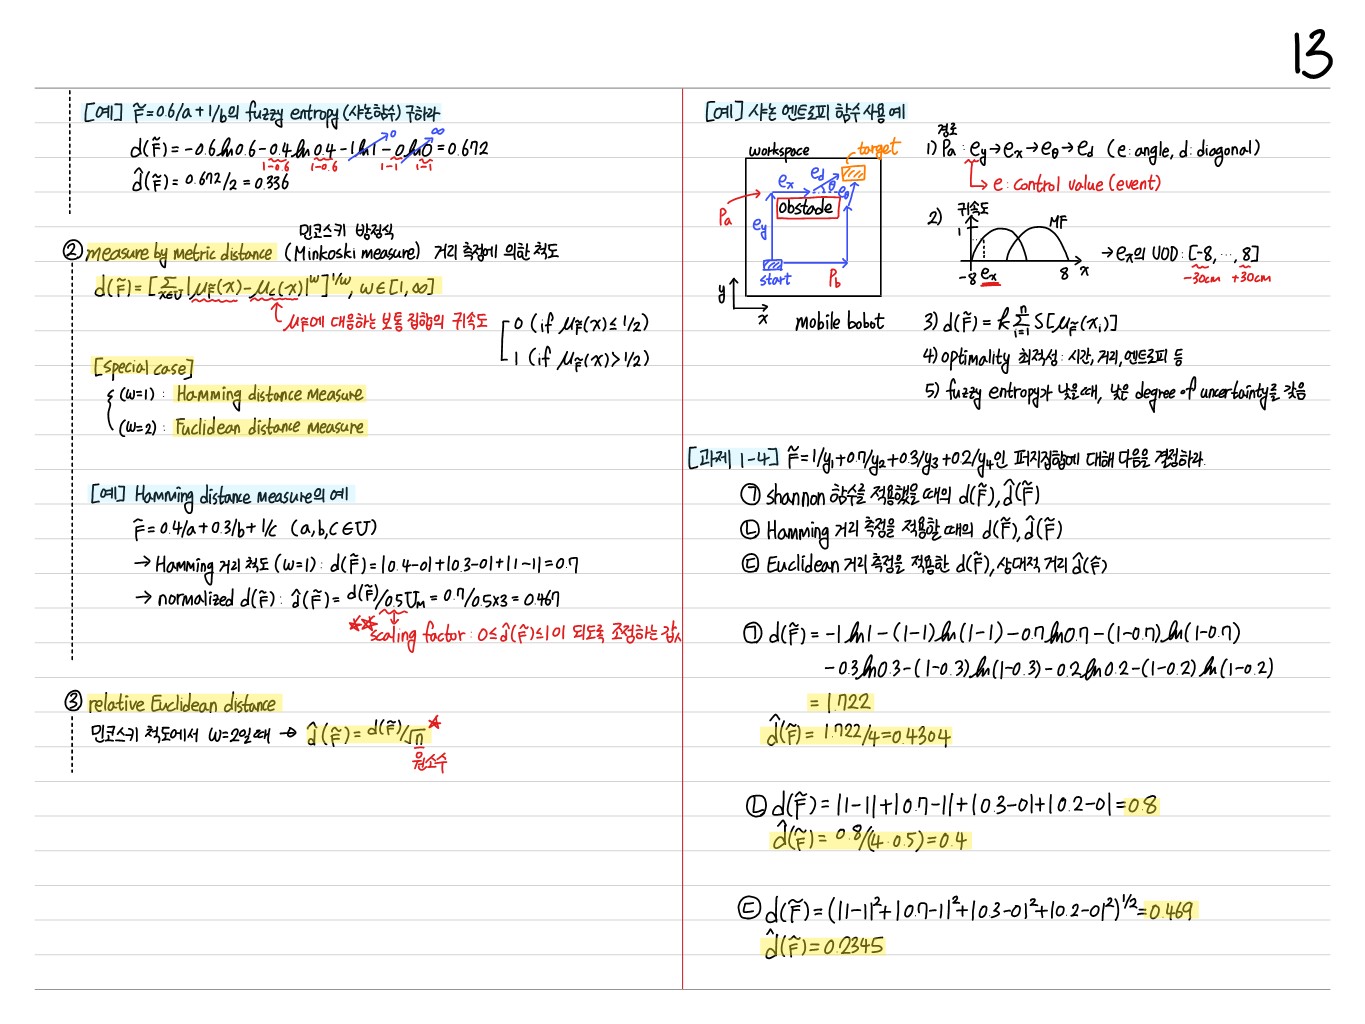 13
[예] F̃=0.6/a+1/b의 fuzzy entropy (샤논함수) 구하라
d(F̃)=-0.6ln0.6-0.4ln0.4-1ln1-0ln0=0.672
0
∞
1-0.6 1-0.6 1-1 1-1
d̂(F̃)=0.672/2=0.336
민코스키 방정식
② measure by metric distance (Minkoski measure) 거리 측정에 의한 척도
d(F̃)=[Σ_{x∈U}|μ_F̃(x)-μ_C(x)|^w]^{1/w}, w∈[1,∞]
μ_F̃에 대응하는 보통집합의 귀속도
0 (if μ_F̃(x)≤1/2)
1 (if μ_F̃(x)>1/2)
[special case]
(w=1): Hamming distance Measure
(w=2): Euclidean distance Measure
[예] Hamming distance measure의 예
F̃=0.4/a+0.3/b+1/c (a,b,c∈U)
→ Hamming 거리 척도 (w=1): d(F̃)=|0.4-0|+|0.3-0|+|1-1|=0.7
→ normalized d(F̃): d̂(F̃)=d(F̃)/0.5U_M=0.7/0.5x3=0.467
☆☆ scaling factor: 0≤d̂(F̃)≤1이 되도록 조정하는 값
③ relative Euclidean distance
민코스키 척도에서 w=2일때 → d̂(F̃)=d(F̃)/√n ☆
원소수
[예] 샤논 엔트로피 함수 사용 예
workspace
target
e_x e_d θ e_θ
Pa
obstacle
e_y
start
P_b
y
x
mobile bobot
경로
1) Pa: e_y→e_x→e_θ→e_d (e:angle, d:diagonal)
→ e: control value (event)
2) 귀속도
1
MF
-8 e_x 8 x
→e_x의 UOD: [-8, ..., 8]
-30cm +30cm
3) d(F̃)=k Σ_{i=1}^{n} S[μ_F̃(x_i)]
4) optimality 최적성: 시간, 거리, 엔트로피 등
5) fuzzy entropy가 낮을때, 낮은 degree of uncertainty를 갖음
[과제 1-4] F̃=1/y₁+0.7/y₂+0.3/y₃+0.2/y₄인 퍼지집합에 대해 다음을 결정하라.
㉠ shannon 함수를 적용했을 때의 d(F̃), d̂(F̃)
㉡ Hamming 거리 측정을 적용할때의 d(F̃), d̂(F̃)
㉢ Euclidean 거리 측정을 적용한 d(F̃), 상대적 거리 d̂(F̃)
㉠ d(F̃)=-1ln1-(1-1)ln(1-1)-0.7ln0.7-(1-0.7)ln(1-0.7)
-0.3ln0.3-(1-0.3)ln(1-0.3)-0.2ln0.2-(1-0.2)ln(1-0.2)
=1.722
d̂(F̃)=1.722/4=0.4304
㉡ d(F̃)=|1-1|+|0.7-1|+|0.3-0|+|0.2-0|=0.8
d̂(F̃)=0.8/(4·0.5)=0.4
㉢ d(F̃)=(|1-1|²+|0.7-1|²+|0.3-0|²+|0.2-0|²)^{1/2}=0.469
d̂(F̃)=0.2345